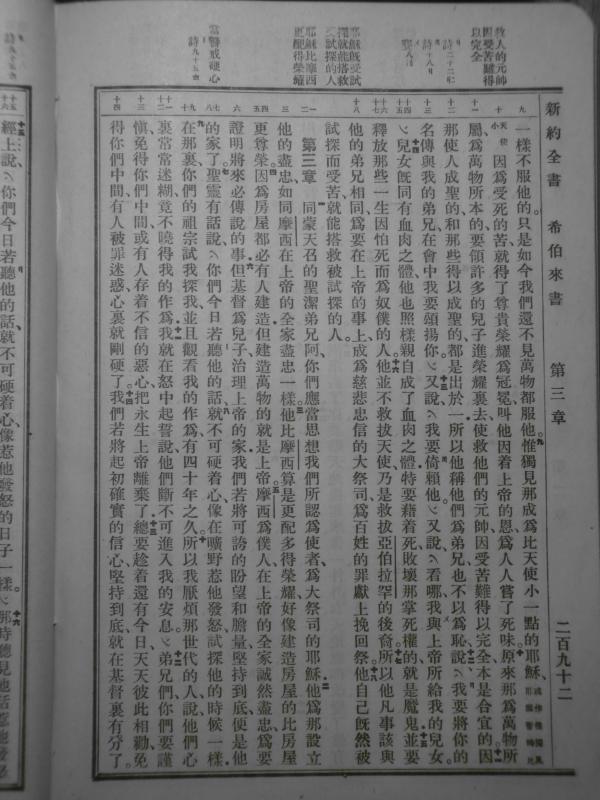 新約全書 希伯來書 第三章 二百九十二
教人的元帥
因受苦難得
以完全
耶穌旣受試
探就能搭救
被試探的人
耶穌比摩西
更配得榮耀
當警戒硬心
一樣不服他的只是如今我們還不見萬物都服他惟獨見那成爲比天使小一點的耶穌
因爲受死的苦就得了尊貴榮耀爲冠冕叫他因着上帝的恩爲人人嘗了死味原來那爲萬物所
屬爲萬物所本的要領許多的兒子進榮耀裏去使救他們的元帥因受苦難得以完全本是合宜的因
那使人成聖的和那些得以成聖的都是出於一所以他稱他們爲弟兄也不以爲恥說我要將你的
名傳與我的弟兄在會中我要頌揚你又說我要倚賴他又說看哪我與上帝所給我的兒女
兒女旣同有血肉之體他也照樣親自成了血肉之體特要藉着死敗壞那掌死權的就是魔鬼並要
釋放那些一生因怕死而爲奴僕的人他並不救拔天使乃是救拔亞伯拉罕的後裔所以他凡事該與
他的弟兄相同爲要在上帝的事上成爲慈悲忠信的大祭司爲百姓的罪獻上挽回祭他自己旣然被
試探而受苦就能搭救被試探的人
第三章 同蒙天召的聖潔弟兄阿你們應當思想我們所認爲使者爲大祭司的耶穌他爲那設立
他的盡忠如同摩西在上帝的全家盡忠一樣他比摩西算是更配多得榮耀好像建造房屋的比房屋
更尊榮因爲房屋都必有人建造但建造萬物的就是上帝摩西爲僕人在上帝的全家誠然盡忠爲要
證明將來必傳說的事但基督爲兒子治理上帝的家我們若將可誇的盼望和膽量堅持到底便是他
的家了聖靈有話說你們今日若聽他的話就不可硬着心像在曠野惹他發怒試探他的時候一樣
在那裏你們的祖宗試我探我並且觀看我的作爲有四十年之久所以我厭煩那世代的人說他們心
裏常常迷糊竟不曉得我的作爲我就在怒中起誓說他們斷不可進入我的安息弟兄們你們要謹
愼免得你們中間或有人存着不信的惡心把永生上帝離棄了總要趁着還有今日天天彼此相勸免
得你們中間有人被罪迷惑心裏就剛硬了我們若將起初確實的信心堅持到底就在基督裏有分了
經上說你們今日若聽他的話就不可硬着心像惹他發怒的日子一樣那時聽見他話惹他發怒